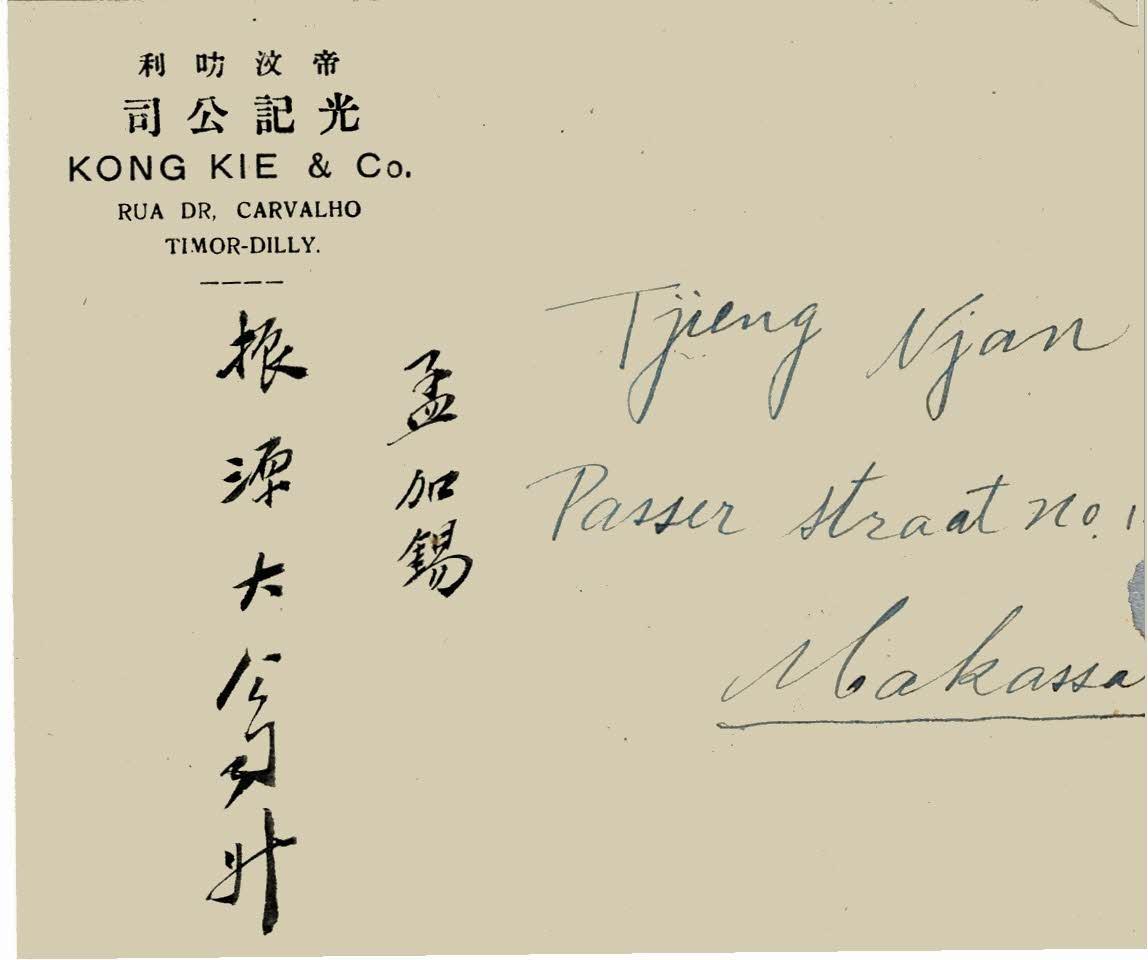 帝汶叻利
光記公司
KONG KIE & Co.
RUA DR, CARVALHO
TIMOR-DILLY.
孟加錫
振源大公司升
Tjieng Njan
Passer straat no. 1
Makassa